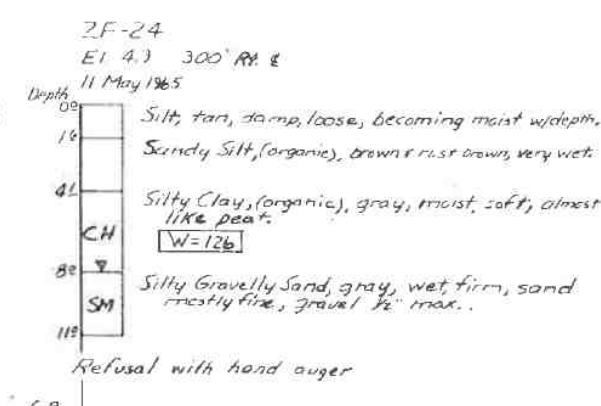 2F-24
El 4.3 300' Rt. ℄
11 May 1965
Depth
0⁰
Silt, tan, damp, loose, becoming moist w/depth.
1⁶
Sandy Silt, (organic), brown & rust brown, very wet.
4
Silty Clay, (organic), gray, moist, soft, almost
like peat.
CH
W=126
8⁰
Silty Gravelly Sand, gray, wet, firm, sand
mostly fine, gravel ½" max..
SM
11
Refusal with hand auger